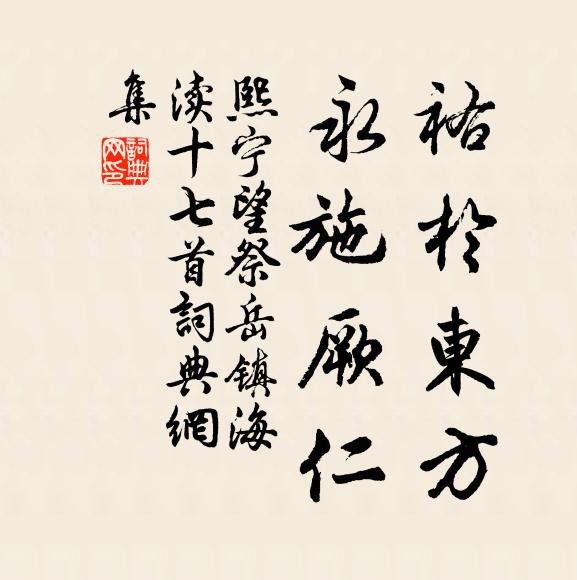 祐於東方
永施厥仁
熙宁望祭岳镇海
渎十七首詞典網
集
詞典網印